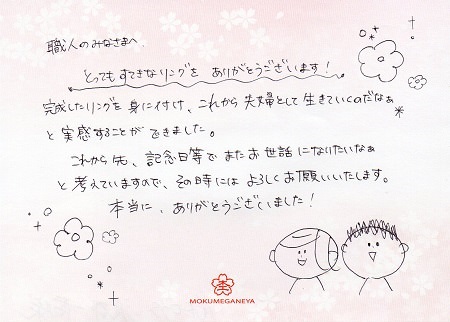 職人のみなさまへ
とってもすてきなリングを ありがとうございます!
完成したリングを身に付け、これから夫婦として生きていくのだなぁ
と実感することができました。
これから先、記念日等でまたお世話になりたいなぁ
と考えていますので、その時にはよろしくお願いいたします。
本当に、ありがとうございました!
MOKUMEGANEYA